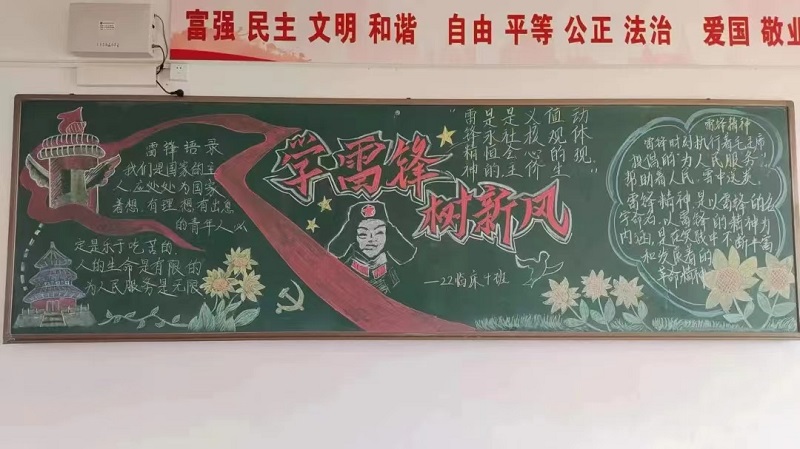 富强 民主 文明 和谐 自由 平等 公正 法治 爱国 敬业
雷锋语录
我们是国家的主
人,应处处为国家
着想,有理想有出息
的青年人,必
定是乐于吃苦的,
人的生命是有限的
为人民服务是无限
学雷锋
树新风
—22临床十班
"雷锋精神
是永恒的
是社会主
义核心价
值观的生
动体现"
雷锋精神
雷锋时刻执行着毛主席
提倡的"为人民服务",
帮助着人民,雪中送炭。
雷锋精神,是以雷锋的名
字命名,以雷锋的精神为
内涵,是在实践中不断丰富
和发展着的
革命精神